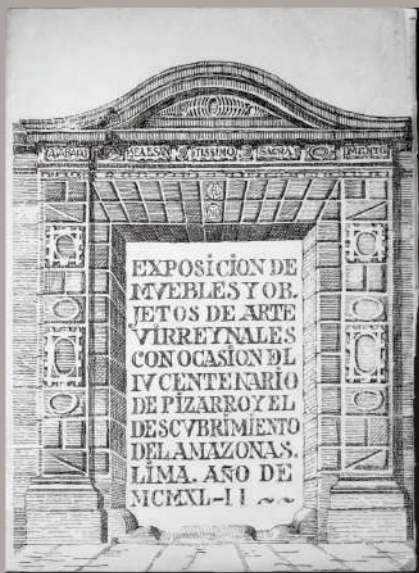 ALABADO SEA EL SAN TISSIMO SACRA MENTO
EXPOSICION DE
MVEBLES Y OB-
JETOS DE ARTE
VIRREYNALES
CON OCASION DL
IV CENTENARIO
DE PIZARRO Y EL
DESCVBRIMIENTO
DEL AMAZONAS.
LIMA. AÑO DE
MCMXL-II ~~